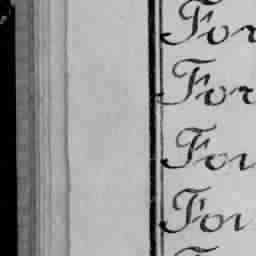 For
For
For
For